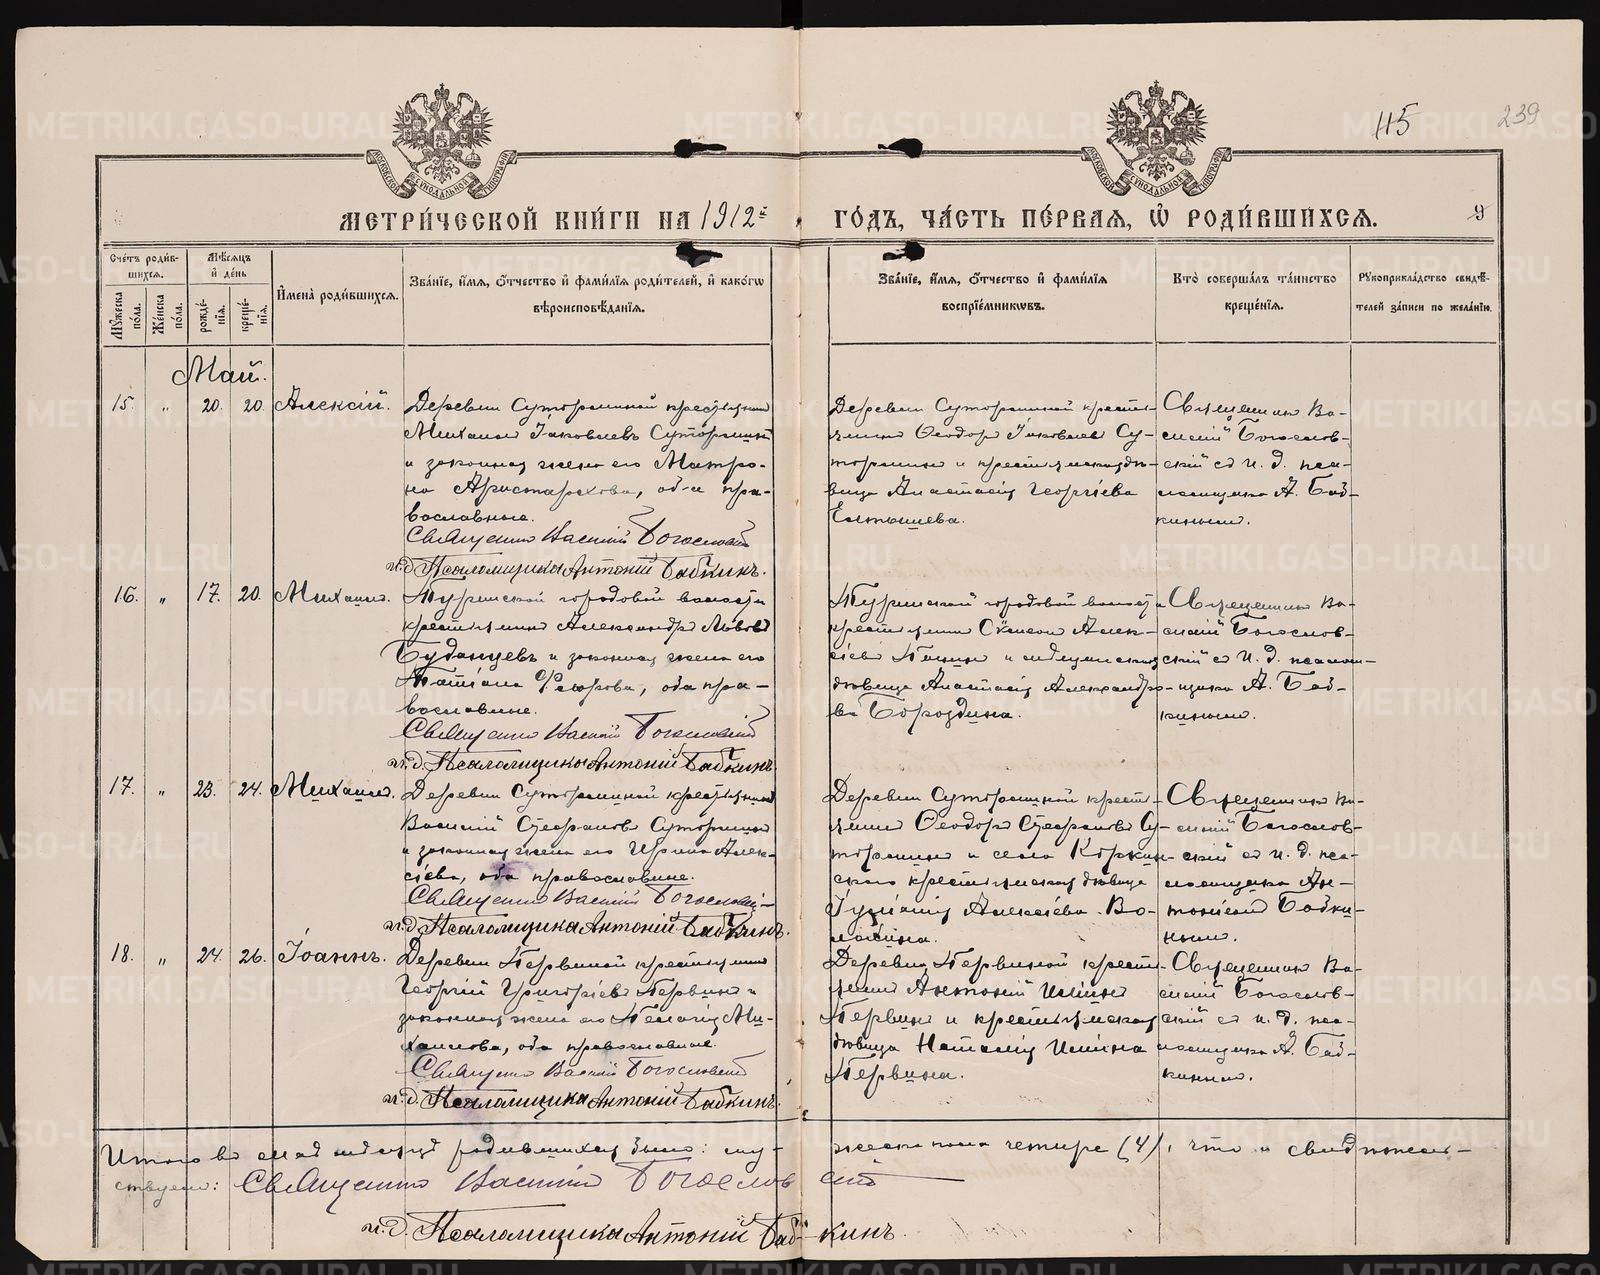 115
239
МОСКОВСКОЙ СѴНОДАЛЬНОЙ ТИПОГРАФІИ
МОСКОВСКОЙ СѴНОДАЛЬНОЙ ТИПОГРАФІИ
МЕТРИ́ЧЕСКОЙ КНИ́ГИ НА 1912й ГО́ДЪ, ЧА́СТЬ ПЕ́РВАѦ, Ѽ РОДИ́ВШИХСѦ.
9
Счетъ родив-
шихсѧ.
Мѣсѧцъ
и день
Имена родившихсѧ.
Званїе, имѧ, ѿчество и фамилїѧ родителей, и какогѡ
вѣроисповѣданїѧ.
Званїе, имѧ, ѿчество и фамилїѧ
воспрїемникѡвъ.
Кто совершалъ таинство
крещенїѧ.
Рꙋкоприкладство свидѣ-
телей записи по желанїю.
Мꙋжеска
пола.
Женска
пола.
рожде-
нїѧ.
креще-
нїѧ.
Май.
15. „ 20. 20. Алексій.
Деревни Сутормикой крестьянин
Михаилъ Іаковлевъ Сутормин
и законная жена его Матро-
на Аристархова, оба пра-
вославные.
Священникъ Василій Богословскій
и.д. Псаломщика Антоній Бабкинъ.
Деревни Сутормикой кресть-
янинъ Ѳеодоръ Іаковлевъ Су-
торминъ и крестьянская дѣ-
вица Анастасія Георгіева
Елтышева.
Священникъ Ва-
силій Богослов-
скій съ и. д. пса-
ломщика А. Баб-
кинымъ.
16. „ 17. 20. Михаилъ.
Туринской городовой волости
крестьянинъ Александръ Львовъ
Буданцевъ и законная жена его
Татіана Флорова, оба пра-
вославные.
Священникъ Василій Богословскій
и.д. Псаломщика Антоній Бабкинъ.
Туринской городовой волости
крестьянинъ Сѵмеонъ Алек-
сіевъ и мѣщанская
дѣвица Анастасія Александро-
ва Бороздина.
Священникъ Ва-
силій Богослов-
скій съ и. д. псалом-
щика А. Баб-
кинымъ.
17. „ 23. 24. Михаилъ.
Деревни Сутормикой крестьянинъ
Василій Стефановъ Суторминъ
и законная жена его Ирина Алек-
сіева, оба православные.
Священникъ Василій Богословскій
и.д. Псаломщика Антоній Бабкинъ.
Деревни Сутормикой кресть-
янинъ Ѳеодоръ Стефановъ Су-
торминъ и села Коркин-
скаго крестьянская дѣвица
Алексіева Во-
Священникъ Ва-
силій Богослов-
скій съ и. д. пса-
ломщика Ан-
тоніемъ Бабки-
нымъ.
18. „ 24. 26. Іоаннъ.
Деревни Первиной крестьянинъ
Георгій Григоріевъ Первинъ и
законная жена его Пелагія Ми-
хаилова, оба православные.
Священникъ Василій Богословскій
и.д. Псаломщика Антоній Бабкинъ.
Деревни Первиной кресть-
янинъ Антоній Иліинъ
Первинъ и крестьянская
дѣвица Наталія Иліина
Первина.
Священникъ Ва-
силій Богослов-
скій съ и. д. пса-
ломщика А. Баб-
кинымъ.
Итого въ маѣ мѣсяцѣ родившихся было: му-жеска пола четыре (4), что и свидѣтель-
ствуемъ: Священникъ Василій Богословскій
и.д. Псаломщика Антоній Бабкинъ.